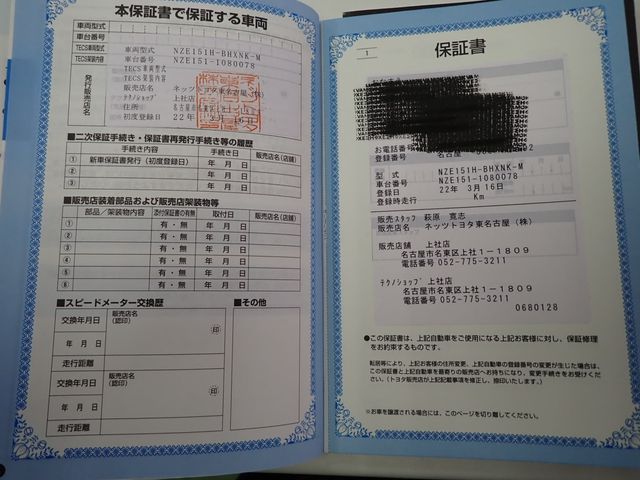 本保証書で保証する車両
車両型式
車台番号
TECS車両型式
TECS架装内容
発行販売店名
車両型式 NZE151H-BHXNK-M
車台番号 NZE151-1080078
TECS車両型式
TECS架装内容
販売店名 ネッツトヨタ東名古屋(株)
テクノショップ 上社店
住所
初度登録日 22年 3月 16日
■二次保証手続き・保証書再発行手続き等の履歴
手続き内容 手続き日 販売店名(店舗)
① 新車保証書発行(初度登録日) 年 月 日
② 年 月 日
③ 年 月 日
■販売店装着部品および販売店架装物等
部品/架装物内容 添付保証書の有無 取付日 販売店名(店舗)
① 有・無 年 月 日
② 有・無 年 月 日
③ 有・無 年 月 日
④ 有・無 年 月 日
⑤ 有・無 年 月 日
⑥ 有・無 年 月 日
■スピードメーター交換歴
交換年月日 販売店名(認印)
年 月 日 印
走行距離
交換年月日 販売店名(認印)
年 月 日 印
走行距離
■その他
1
保証書
お電話番号
登録番号 名古屋
型 式 NZE151H-BHXNK-M
車台番号 NZE151-1080078
登録日 22年 3月16日
登録時走行 Km
販売スタッフ 萩原 寛志
販売店名 ネッツトヨタ東名古屋(株)
販売店舗 上社店
名古屋市名東区上社1-1809
電話番号 052-775-3211
テクノショップ 上社店
名古屋市名東区上社1-1809
電話番号 052-775-3211
0680128
●この保証書は、上記自動車をご使用になる上記お客様に対し、保証修理
をお約束するものです。
転居等により、上記お客様の住所変更、上記自動車の登録番号の変更が生じた場合は、
この保証書と上記自動車を最寄りの販売店へお持ちになり、変更手続きをお受けくだ
さい。(トヨタ販売店が上記記載事項を修正し、捺印いたします。)
※お車を譲渡される場合には、このページを切り離してください。